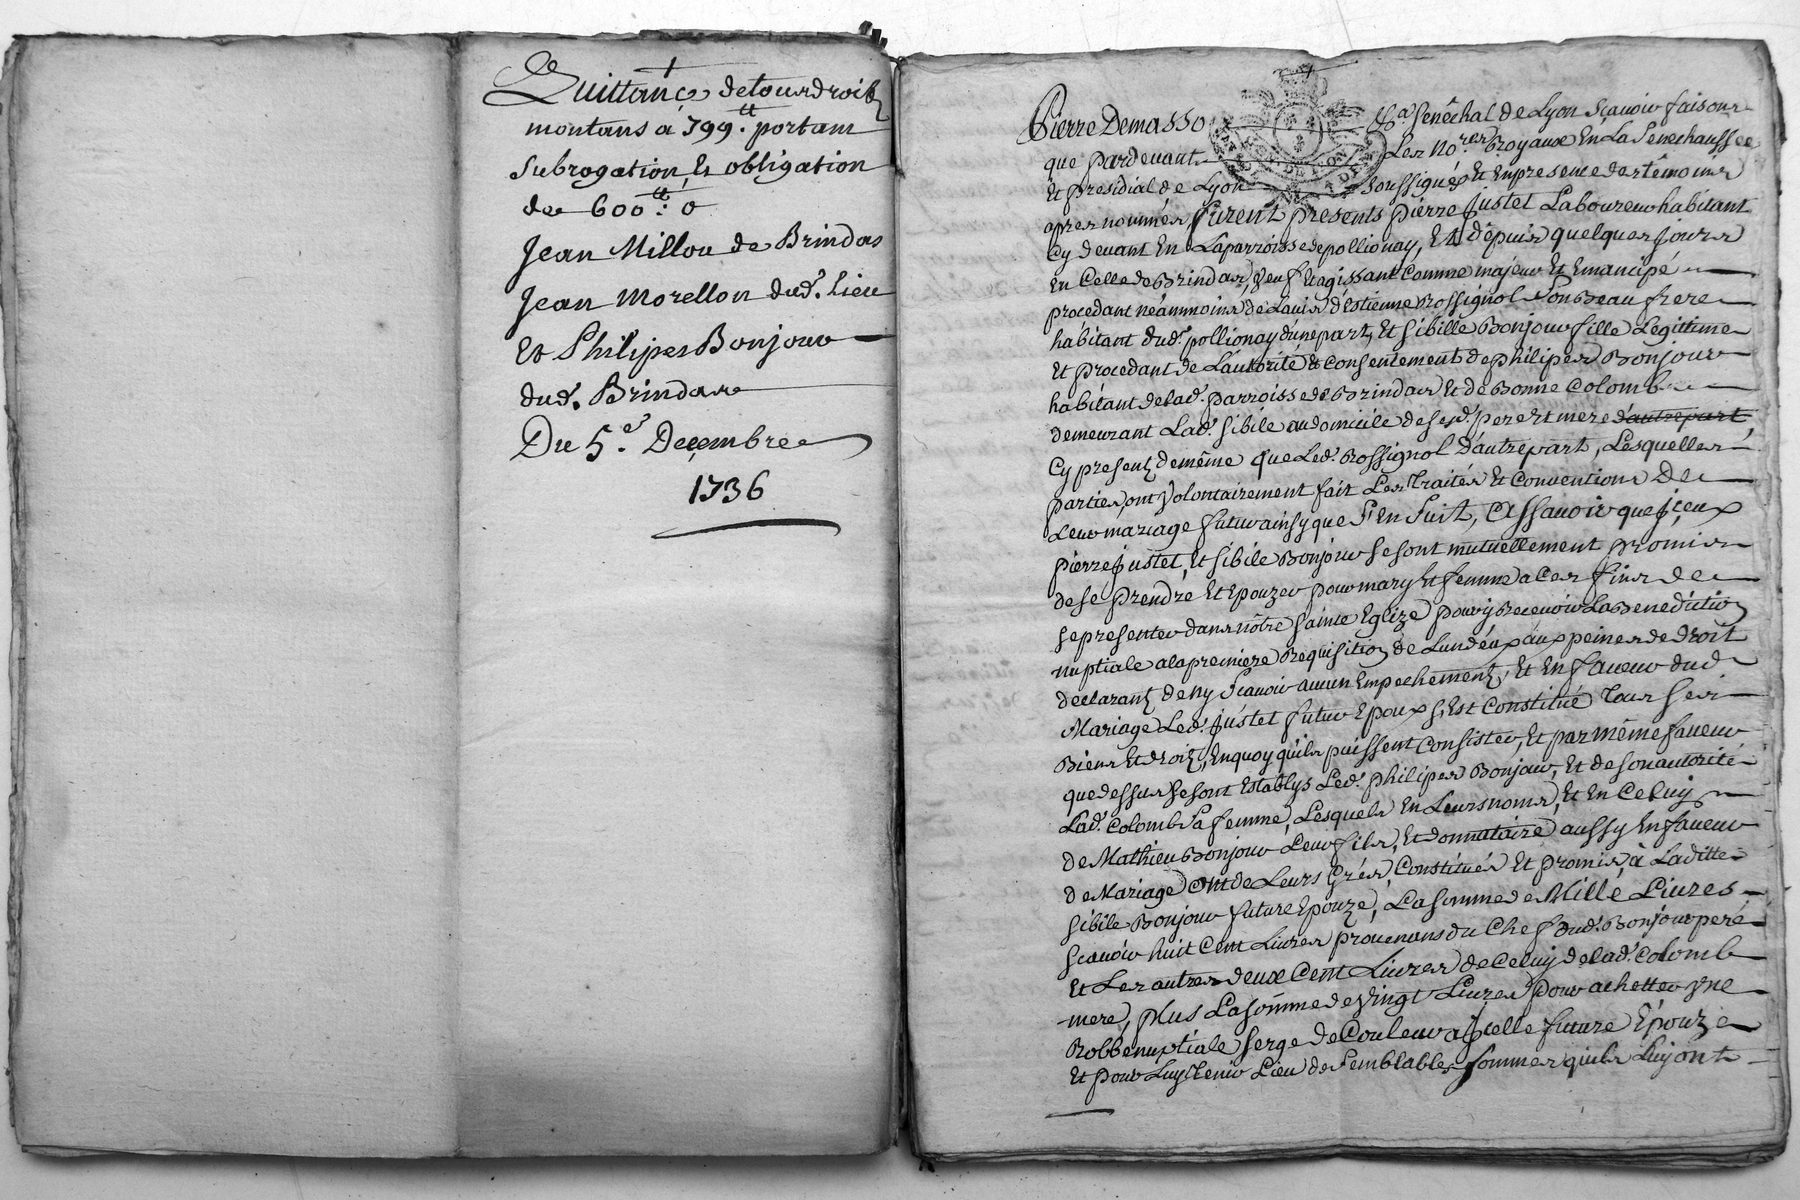 Quittance de tous droits
montans à 799ᵗᵗ. portant
Subrogation Et obligation
de 600ᵗᵗ: 0
Jean Millou de Brindas
Jean Morellon dud. Lieu
Et Philipes Bonjour
dud. Brindas
Du 5.e Decembre
1736
Pierre Demasso Sénéchal de Lyon Sçavoir faisons
que pardevant Les No.res Royaux En La Senechaussée
Et presidial de Lyon soussignés Et En presence des témoins
apres nommés furent presents pierre Justet Laboureur habitant
Cy devant En La parroisse de pollionay, Et depuis quelques Jours
En Celle de Brindas, Veuf Et agissant Comme majeur Et Emancipé
procedant néammoins de L'avis d'Estienne Rossignol Son Beau frere
habitant dud. pollionay d'une part, Et Sibille Bonjour fille Legittime
Et procedant de L'autorité & Consentement de philipes Bonjour
habitant de lad. parroisse de Brindas Et de Bonne Colomb
demeurant Lad. Sibile au domicile de sesd. pere Et mere d'autre part,
Cy presents de même que Led. Rossignol d'autre part, Lesquelles
parties ont Volontairement fait Les Traités Et Conventions De
Leur mariage futur ainsy que S'En Suit, Assavoir que Jceux
pierre Justet, Et Sibile Bonjour se sont mutuellement promis
de sé prendre Et Epouzer pour mary Et femme a Ces fins de
se presenter dans nôtre Sainte Eglize pour y Recevoir La Benediction
nuptiale a la premiere Requisition de L'un d'Eux aux peines de droit
declarants de ny Scavoir aucun Empechement, Et En faveur dud.
Mariage Led. Justet futur Epoux S'Est Constitué Tous Ses
Biens Et droits, En quoy qu'ils puissent Consister, Et par même faveur
que dessus se sont Establys Led. philipes Bonjour, Et de son autorité
Lad. Colomb Sa femme, Lesquels En Leurs noms, Et En Celuy
de Mathieu Bonjour Leur fils, Et donnataire aussy En faveur
de Mariage Ont de Leurs Grés, Constitués Et promis à Laditte
Sibile Bonjour future Epouze, La Somme de Mille Livres
Scavoir huit Cent Livres provenans du Chef dud. Bonjour peré
Et Les autres deux Cent Livres de Celuy de lad. Colomb
mere, plus La Sômme de Vingt Livres pour achetter Vne
Robbe nuptiale serge de Couleur a Jcelle future Épouze
Et pour Luy Tenir Lieu de Semblables Sommes qu'ils Luy ont